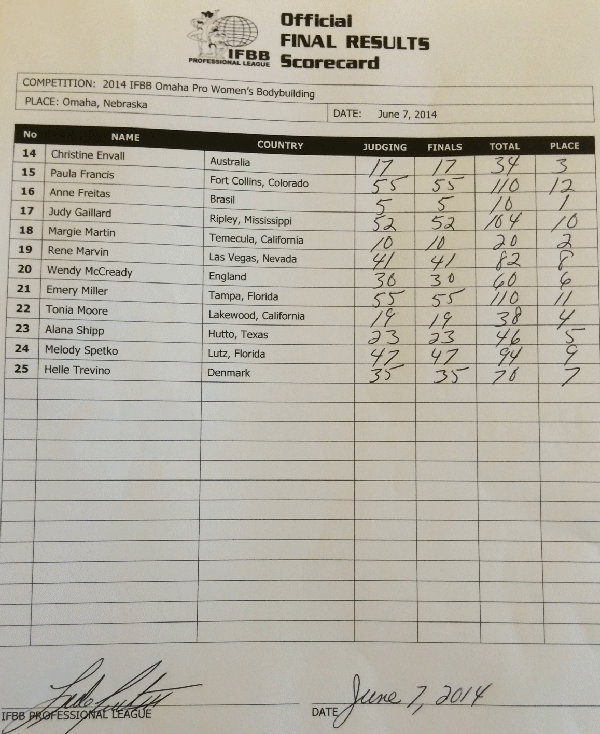 Official
FINAL RESULTS
Scorecard
IFBB
PROFESSIONAL LEAGUE
COMPETITION: 2014 IFBB Omaha Pro Women's Bodybuilding
PLACE: Omaha, Nebraska DATE: June 7, 2014
No NAME COUNTRY JUDGING FINALS TOTAL PLACE
14 Christine Envall Australia 17 17 34 3
15 Paula Francis Fort Collins, Colorado 55 55 110 12
16 Anne Freitas Brasil 5 5 10 1
17 Judy Gaillard Ripley, Mississippi 52 52 104 10
18 Margie Martin Temecula, California 10 10 20 2
19 Rene Marvin Las Vegas, Nevada 41 41 82 8
20 Wendy McCready England 30 30 60 6
21 Emery Miller Tampa, Florida 55 55 110 11
22 Tonia Moore Lakewood, California 19 19 38 4
23 Alana Shipp Hutto, Texas 23 23 46 5
24 Melody Spetko Lutz, Florida 47 47 94 9
25 Helle Trevino Denmark 35 35 70 7
IFBB PROFESSIONAL LEAGUE DATE June 7, 2014